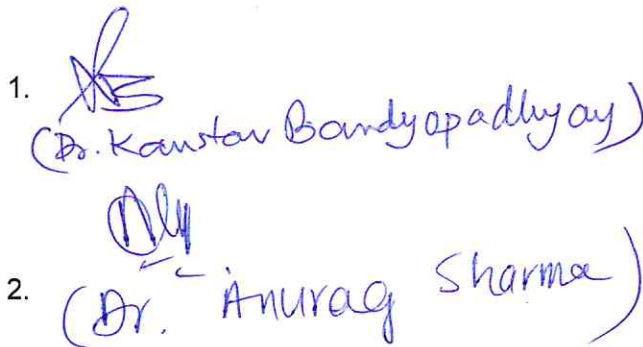 1.
(Dr. Kaustav Bandyopadhyay)
2.
(Dr. Anurag Sharma)